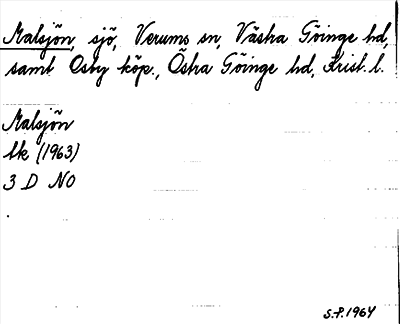 Malsjön, sjö, Verums sn, Västra Göinge hd,
samt Osby köp., Östra Göinge hd, Krist. l.
Malsjön
Ek (1963)
3 D NO
S.P. 1964